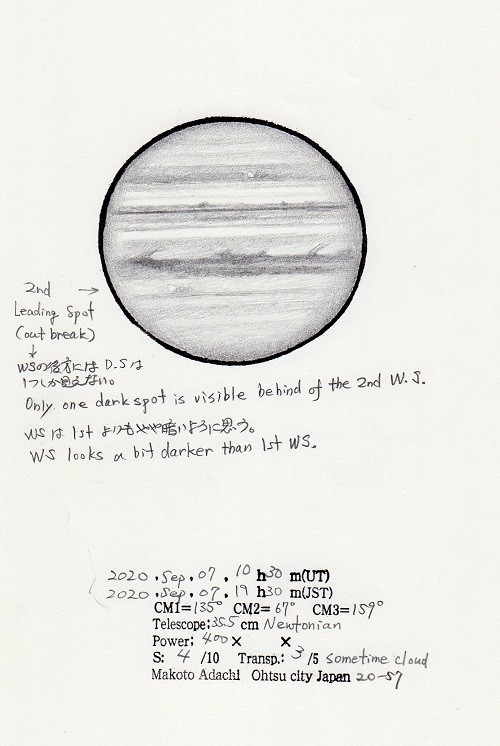 2nd →
Leading Spot
(out break)
↓
WSの後方には D.Sは
1つしか見えない。
Only one dark spot is visible behind of the 2nd W.S.
WSは 1st よりもやや暗いように思う。
WS looks a bit darker than 1st WS.
2020, Sep, 07, 10 h30 m(UT)
2020, Sep, 07, 19 h30 m(JST)
CM1=135° CM2=67° CM3=159°
Telescope; 35.5 cm Newtonian
Power; 400× ×
S: 4 /10 Transp.: 3 /5 sometime cloud
Makoto Adachi Ohtsu city Japan 20-57